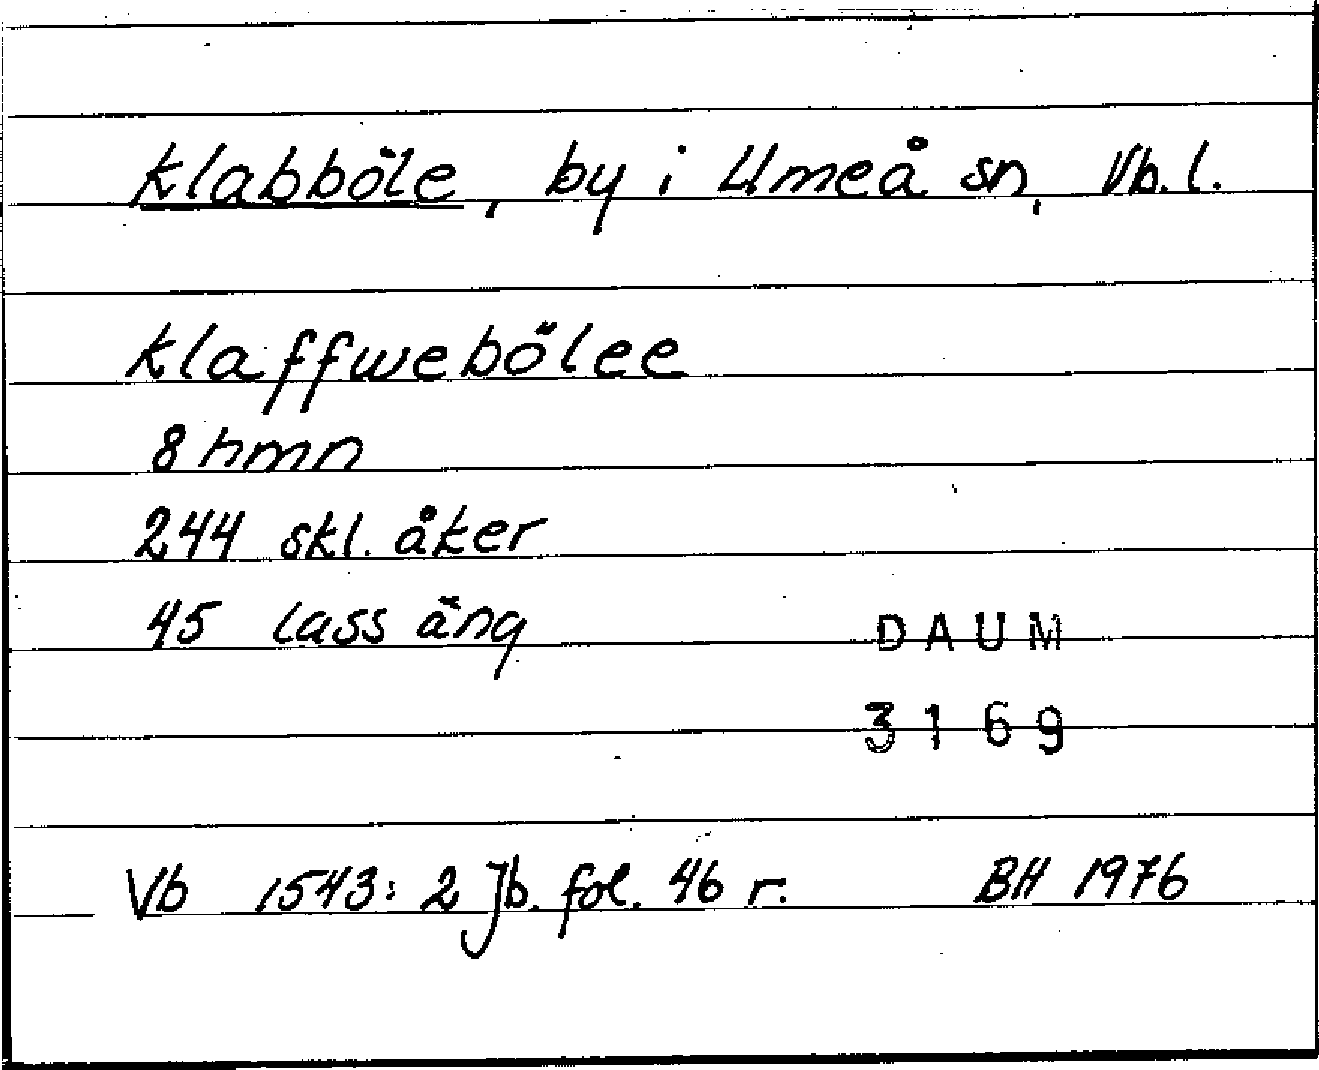 Klabböle, by i Umeå sn, Vb. l.
Klaffweböle​e
8 hmn
244 skl. åker
45 lass äng
DAUM
3169
Vb 1543: 2 Jb. fol. 46 r. BH 1976